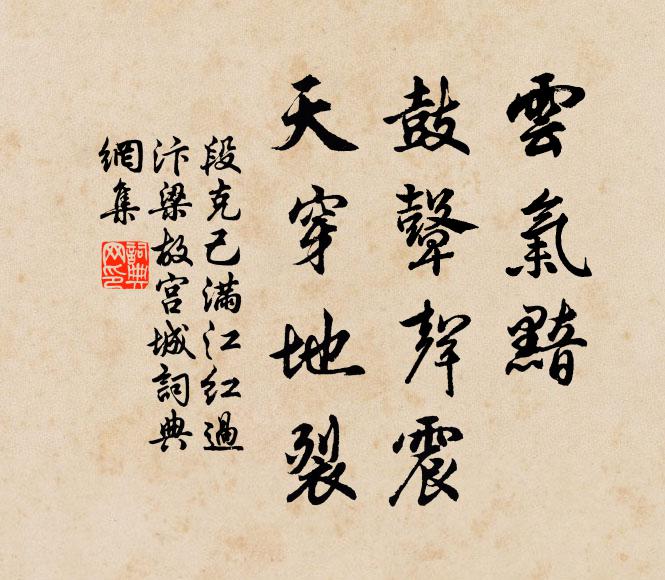 雲氣黯
鼓鼙聲震
天穿地裂
段克己滿江紅過
汴梁故宮城詞典
網集
詞典
网印